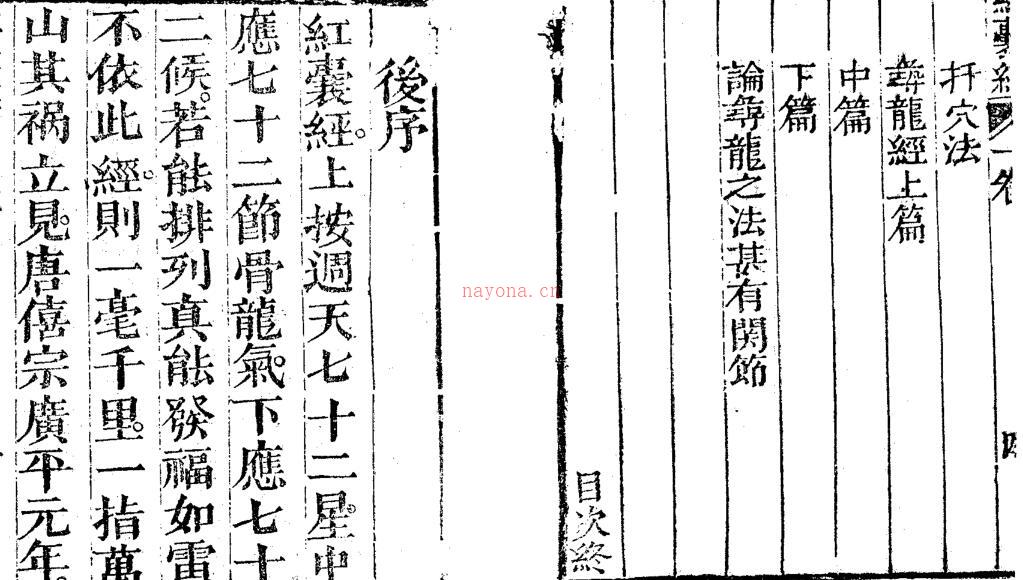 扦穴法
尋龍經上篇
中篇
下篇
論尋龍之法甚有関節
目次終
後序
紅囊經。上按週天七十二星。中
應七十二節骨龍氣。下應七十
二候。若能排列真能發福如雷
不依此經。則一毫千里。一指萬
山其禍立見。唐僖宗廣平元年。
nayona.cn